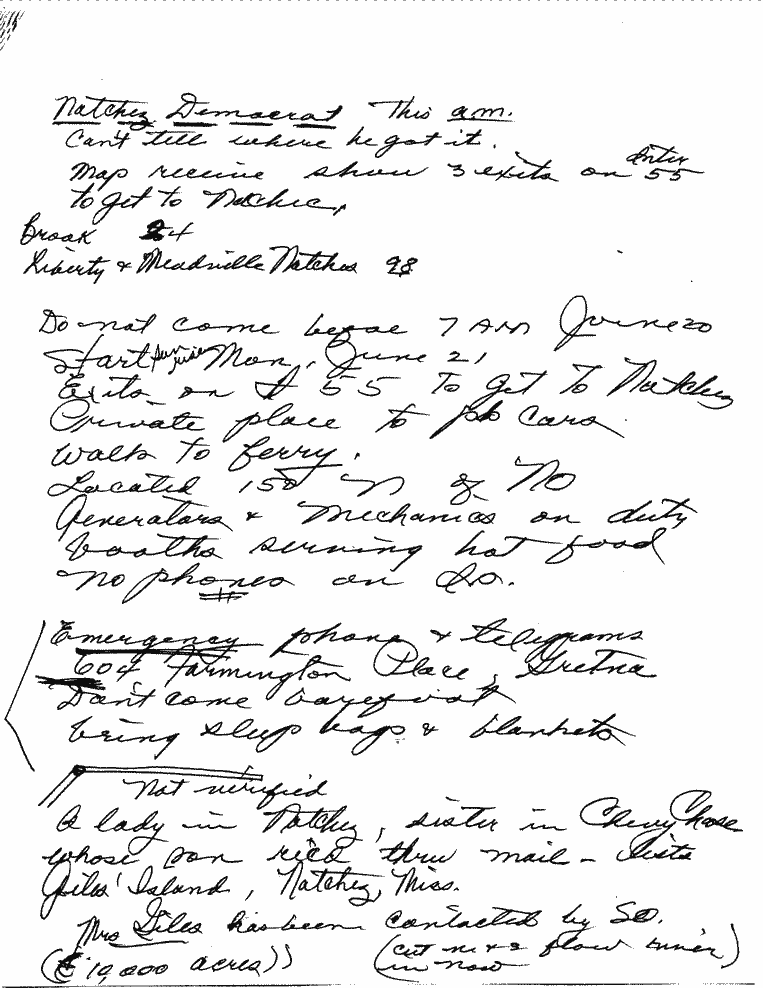 Natchez Democrat This a.m.
Can't tell where he got it.
Map receive show 3 exits on Inter 55
to get to Natchez,
Brook 24
Liberty & Meadville Natches 98
Do not come before 7 AM June 20
Start sunrise Mon, June 21
Exits on I 55 to get to Natchez
Private place to park cars
walk to ferry.
Located 150 N of NO
Generators & mechanics on duty
booths serving hot food
no phones on Is.
Emergency phone & telegrams
604 Farmington Place, Gretna
Don't come barefoot
bring sleep bags & blankets
Not verified
A lady in Natchez, sister in Chevy Chase
whose son recd thru mail - lists
Giles' Island, Natchez, Miss.
Mrs Giles has been contacted by SO.
(10,000 acres)) (cut n & s flow river)
in now